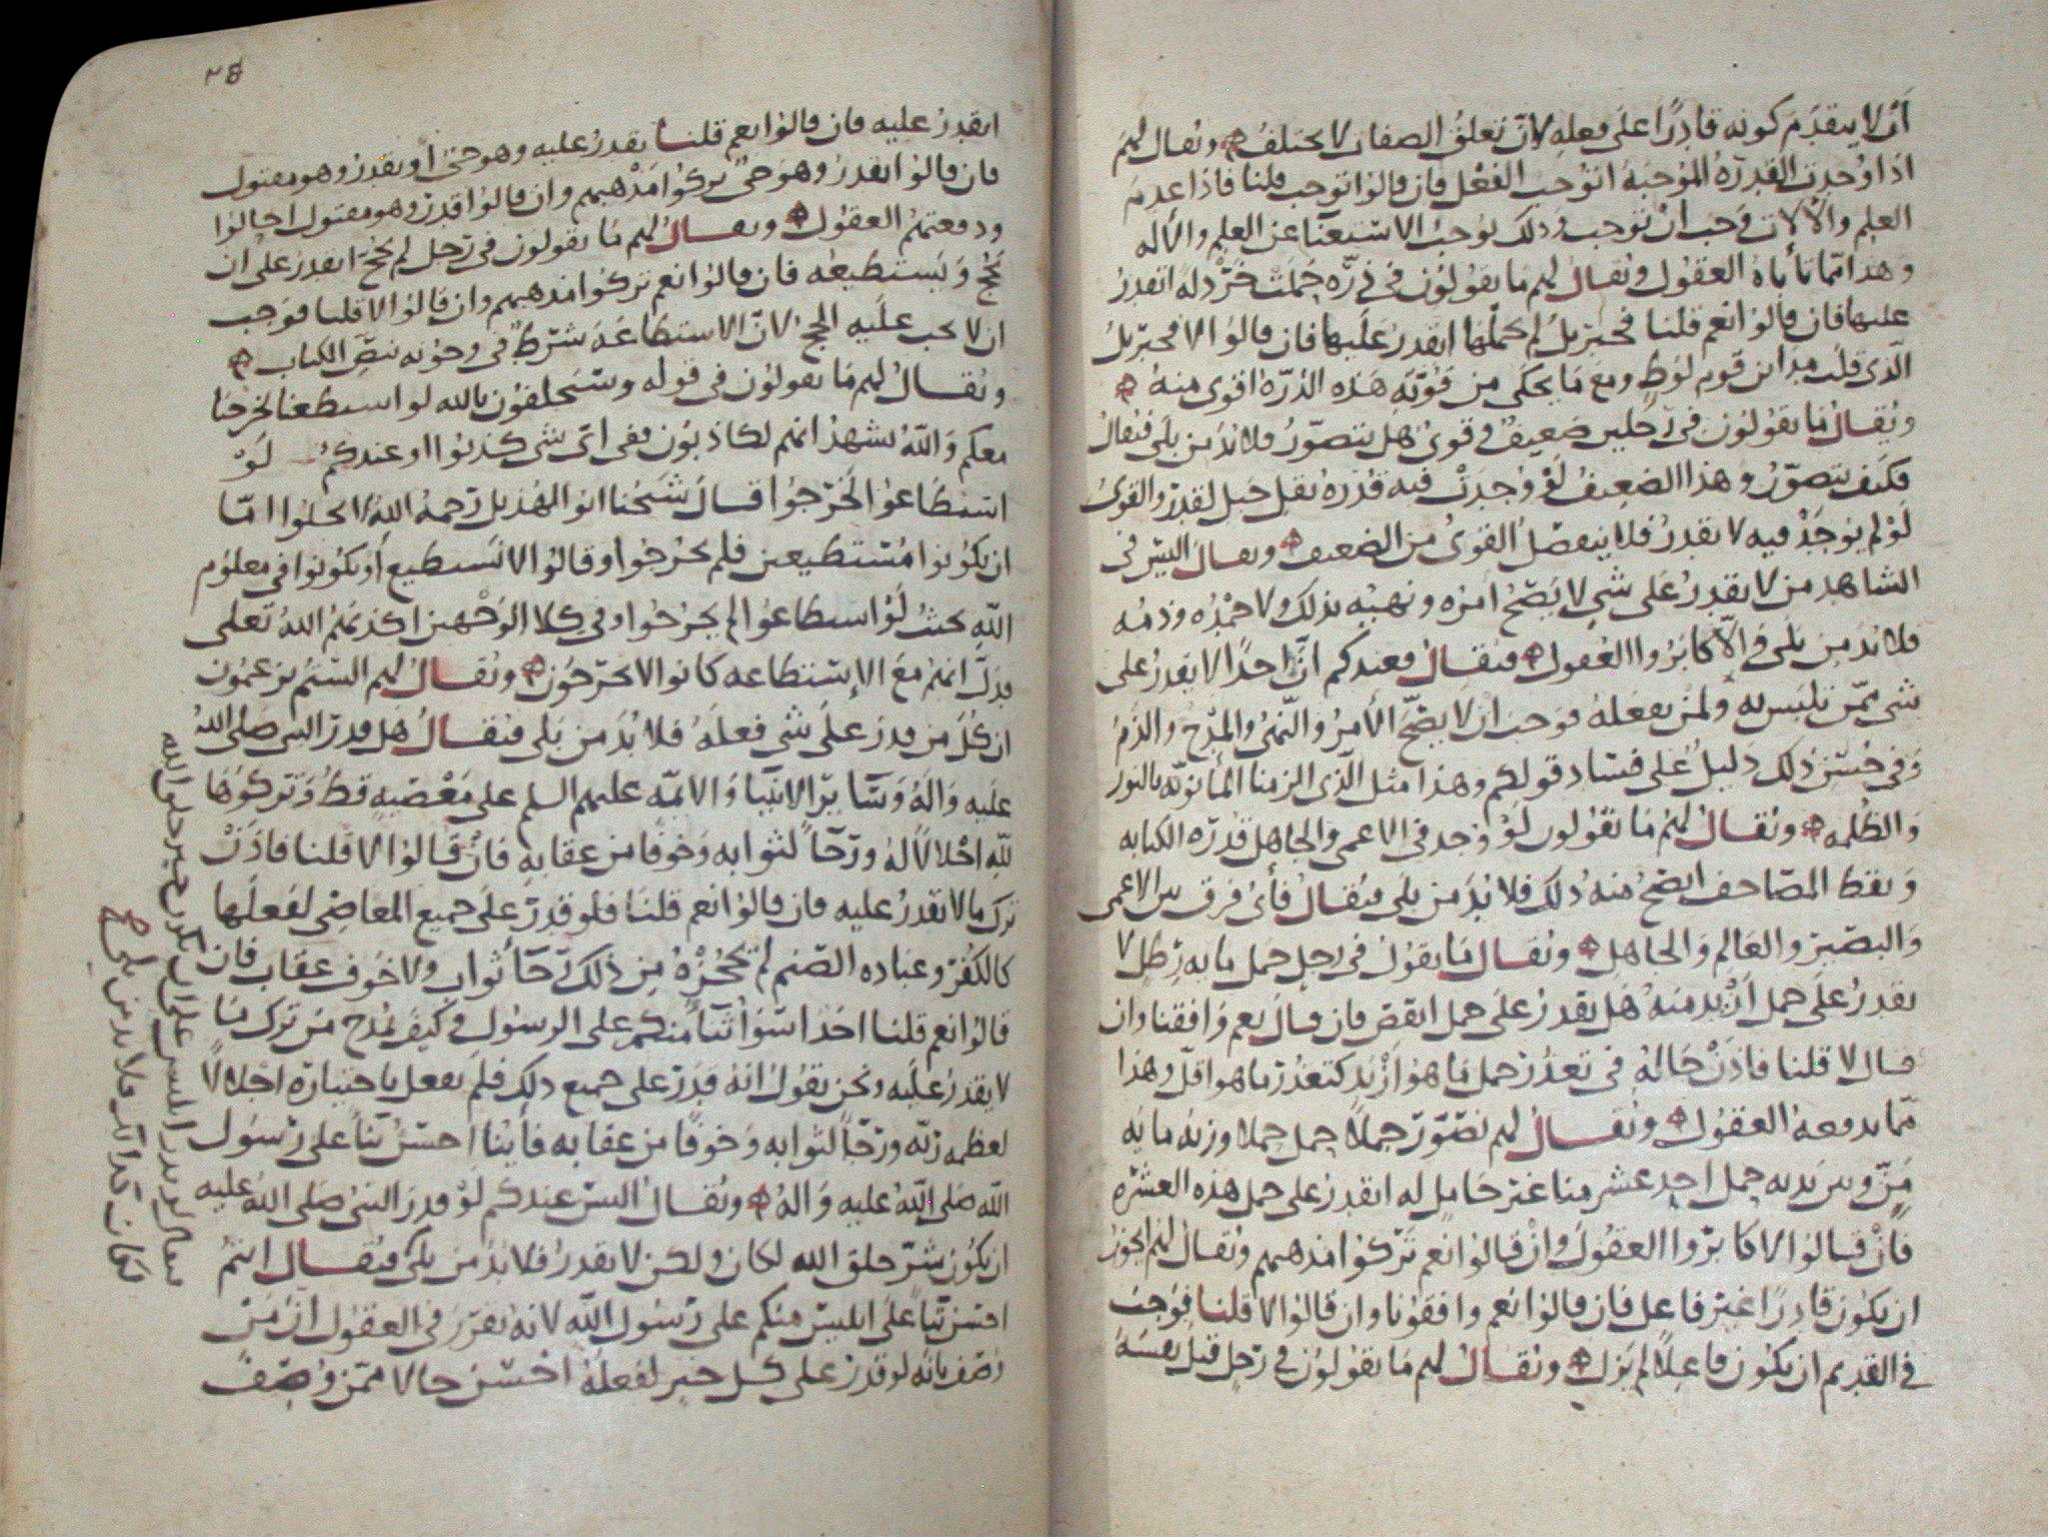 ان لا يتقدم كونه قادرًا على فعله لان تعلق الصفات لا يختلف ويقال لهم
اذا وجدت القدرة الموجبة اتوجب الفعل فان قالوا توجب قلنا فاذا عدم
العلم والالات وجب ان توجب وذلك يوجب الاستغنا عن العلم والاله
وهذا مما تأباه العقول ويقال لهم ما تقولون في ذره حملت خردله اتقدر
عليها فان قالوا نعم قلنا فجبريل لم حملها ايقدر عليها فان قالوا لا فجبريل
الذي قلب مداين قوم لوط ومع ما يحكى من قوته هذه الذره اقوى منه
ويقال ما تقولون في رجلين ضعيف وقوي هل يتصور فلا بد من بلى فيقال
فكيف يتصور وهذا الضعيف لو وجدت فيه قدره نقل جبل لقدر والقوي
لو لم يوجد فيه لا يقدر فلا ينفصل القوي من الضعيف ويقال اليس في
الشاهد من لا يقدر على شي لا يصح امره ونهيه بذلك ولا حمده وذمه
فلا بد من بلى والا كابروا العقول فيقال فعندكم ان احدًا لا يقدر على
شي ممن تلبس به ولمن يفعله فوجب ان لا يصح الأمر والنهي والمدح والذم
وفي حسن ذلك دليل على فساد قولكم وهذا مثل الذي الزمنا المانويه بالنور
والظلمه ويقال لهم ما تقولون لو وجد في الاعمى والجاهل قدره الكتابه
ونقط المصاحف ايصح منه ذلك فلا بد من بلى فيقال فأي فرق بين الاعمى
والبصير والعالم والجاهل ويقال ما تقول في رجل حمل مايه رطل لا
يقدر على حمل ازيد منه هل يقدر على حمل انقص فان قال نعم وافقنا وان
قال لا قلنا فاذن حاله في تعذر حمل ما هو ازيد كتعذر ما هو اقل وهذا
مما يدفعه العقول ويقال لهم نتصور جملا حمل حملا وزنه مايه
من ويزيد به حمل احد عشر منا غير حامل له ايقدر على حمل هذه العشره
فان قالوا لا كابروا العقول وان قالوا نعم تركوا مذهبهم ويقال لهم ايجوز
ان يكون قادرًا غير فاعل فان قالوا نعم وافقونا وان قالوا لا قلنا فيوجب
في القديم ان يكون فاعلًا لم يزل ويقال لهم ما تقولون في رجل قتل نفسه
٣٨
ايقدر عليه فان قالوا نعم قلنا يقدر عليه وهو حي او يقدر وهو مقتول
فان قالوا يقدر وهو حي تركوا مذهبهم وان قالوا قدر وهو مقتول احالوا
ودفعتهم العقول ويقال لهم ما تقولون في رجل لم يحج ايقدر على ان
يحج ويستطيعه فان قالوا نعم تركوا مذهبهم وان قالوا لا قلنا فوجب
ان لا يجب عليه الحج لان الاستطاعه شرط في وجوبه بنص الكتاب
ويقال لهم ما تقولون في قوله وسيحلفون بالله لو استطعنا لخرجنا
معكم والله يشهد انهم لكاذبون ففي اي شي كذبوا اوعندكم لو
استطاعوا لخرجوا قال شيخنا ابو الهذيل رحمه الله لا يخلوا اما
ان يكونوا مستطيعين فلم يخرجوا وقالوا لا نستطيع أو يكونوا في معلوم
الله بحيث لو استطاعوا لم يخرجوا وفي كلا الوجهين اكذبهم الله تعلى
فدل انهم مع الإستطاعه كانوا لا يخرجون ويقال لهم الستم تزعمون
ان كل من قدر على شي فعله فلا بد من بلى فيقال هل قدر النبي صلى الله
عليه واله وساير الانبيا والايمه عليهم السلم على معصيه قط وتركوها
لله اجلالًا له ورجاً لثوابه وخوفًا من عقابه فان قالوا لا قلنا فاذن
ترك ما لا يقدر عليه فان قالوا نعم قلنا فلو قدر على جميع المعاصي لفعلها
كالكفر وعباده الصنم لم يحجزه من ذلك رجا ثواب ولا خوف عقاب فان
قالوا نعم قلنا احد اسوأ ثنآ منكم على الرسول وكيف يمدح من ترك ما
لا يقدر عليه ونحن نقول انه قدر على جميع ذلك فلم يفعل باختياره اجلالًا
لعظمه ربه ورجاً لثوابه وخوفًا من عقابه فأينا احسن ثنآ على رسول
الله صلى الله عليه واله ويقال اليس عندكم لو قدر النبي صلى الله عليه
ان يكون شر خلق الله لكان ولكن لا يقدر فلا بد من بلى فيقال انتم
احسن ثنآ على ابليس منكم على رسول الله لانه تقرر في العقول ان من
وصف بانه لو قدر على كل خير لفعله احسن حالا ممن وصف
فيقال لو قدر ابليس على ان يكون خير خلق الله
لكان كذلك فلا بد من بلى صح